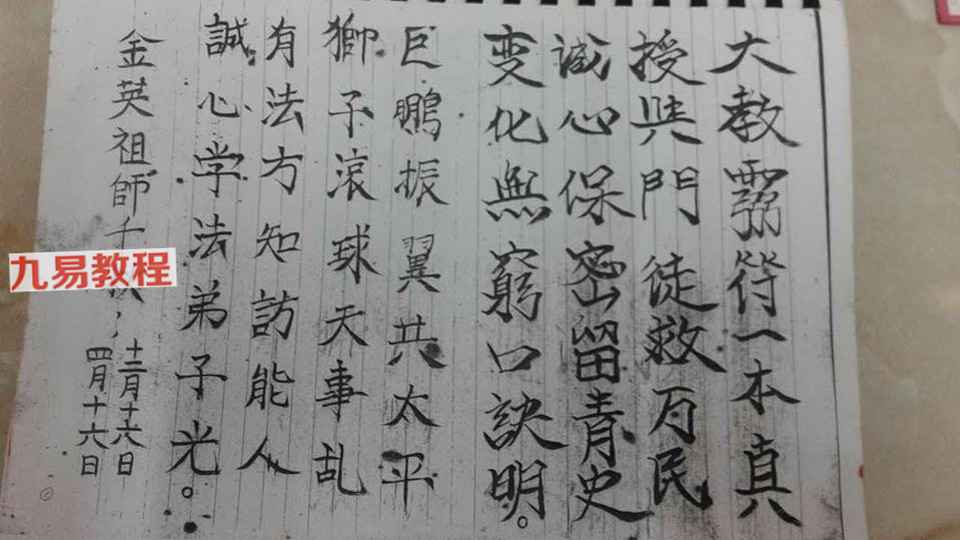 大教霛符一本真
授與門徒救万民
诚心保密留青史
变化無窮口訣明。
巨鵬振翼共太平
獅子滾球天事乱
有法方知訪能人
誠心学法弟子光。
金英祖師千秋
十二月十六日
四月十六日
九易教程